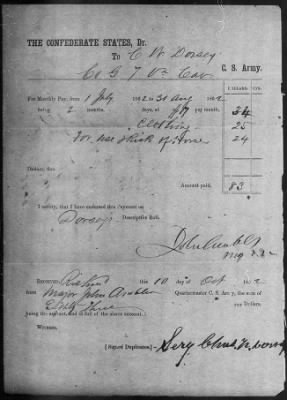 THE CONFEDERATE STATES, Dr.
To C W Dorsey
Co G 7 Va Cav C. S. Army.
DOLLARS. CTS.
For Monthly Pay, from 1 July 1862 to 31 Aug 1862
being 2 months, days, at $17 per month 34
Clothing 25
For use & Risk of Horse 24
Deduct, due
Amount paid, 83
I certify, that I have endorsed this payment on
Dorsey's Descriptive Roll.
John Ambler
Maj
RECEIVED, this 10 day of Oct 1862
from Major John Ambler Quartermaster C. S. Army, the sum of
Eighty Three Dollars,
being the amount, and in full of the above account.
Witness,
[Signed Duplicates.] Serg Chas W Dorsey